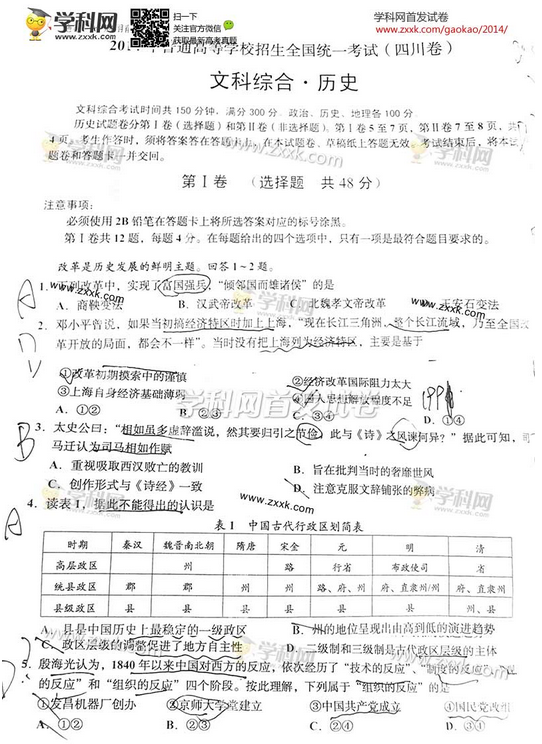 学科网
www.zxxk.com
扫一扫
关注官方微信
获取最新高考真题
学科网首发试卷
www.zxxk.com/gaokao/2014/
普通高等学校招生全国统一考试(四川卷)
文科综合·历史
文科综合考试时间共150分钟,满分300分。政治、历史、地理各100分。
历史试题卷分第Ⅰ卷(选择题)和第Ⅱ卷(非选择题)。第Ⅰ卷5至7页,第Ⅱ卷7至8页,共
4页。考生作答时,须将答案答在答题卡上,在本试题卷、草稿纸上答题无效。考试结束后,将本试
题卷和答题卡一并交回。
第Ⅰ卷 (选择题 共48分)
注意事项:
必须使用2B铅笔在答题卡上将所选答案对应的标号涂黑。
第Ⅰ卷共12题,每题4分。在每题给出的四个选项中,只有一项是最符合题目要求的。
改革是历史发展的鲜明主题。回答1~2题。
A
1. 下列改革中,实现了“富国强兵”“倾邻国而雄诸侯”的是
A. 商鞅变法 B. 汉武帝改革 C. 北魏孝文帝改革 D. 王安石变法
2. 邓小平曾说,如果当初搞经济特区时加上上海,“现在长江三角洲,整个长江流域,乃至全国改
革开放的局面,都会不一样”。当时没有把上海列为经济特区,主要是基于
①改革初期摸索中的谨慎 ②经济改革国际阻力太大
③上海自身经济基础薄弱 ④人民思想解放程度不足
A. ①② B. ②③ C. ③④ D. ①④
B
3. 太史公曰:“相如虽多虚辞滥说,然其要归引之节俭,此与《诗》之风谏何异?”据此可知,司
马迁认为司马相如作赋
A. 重视吸取西汉败亡的教训 B. 旨在批判当时的奢靡世风
C. 创作形式与《诗经》一致 D. 注意克服文辞铺张的弊病
A
4. 读表1,据此不能得出的认识是
表1 中国古代行政区划简表
时期 秦汉 魏晋南北朝 隋唐 宋金 元 明 清
高层政区 州 路 行省 布政使司 省
统县政区 郡 郡 州 州 路、府、州 府、直隶州 府、直隶州
县级政区 县 县 县 县 县 县、州 县
A. 县是中国历史上最稳定的一级政区 B. 州的地位呈现出由高到低的演进趋势
C. 政区层级的调整促进了地方自主性 D. 二级制和三级制是古代政区层级的主体
D
5. 殷海光认为,1840年以来中国对西方的反应,依次经历了“技术的反应”、“制度的反应”、
的反应”和“组织的反应”四个阶段。按此理解,下列属于“组织的反应”的是
①发昌机器厂创办 ②京师大学堂建立 ③中国共产党成立 ④国民党改组
A. ①② B. ②③ C. ③④ D. ①④